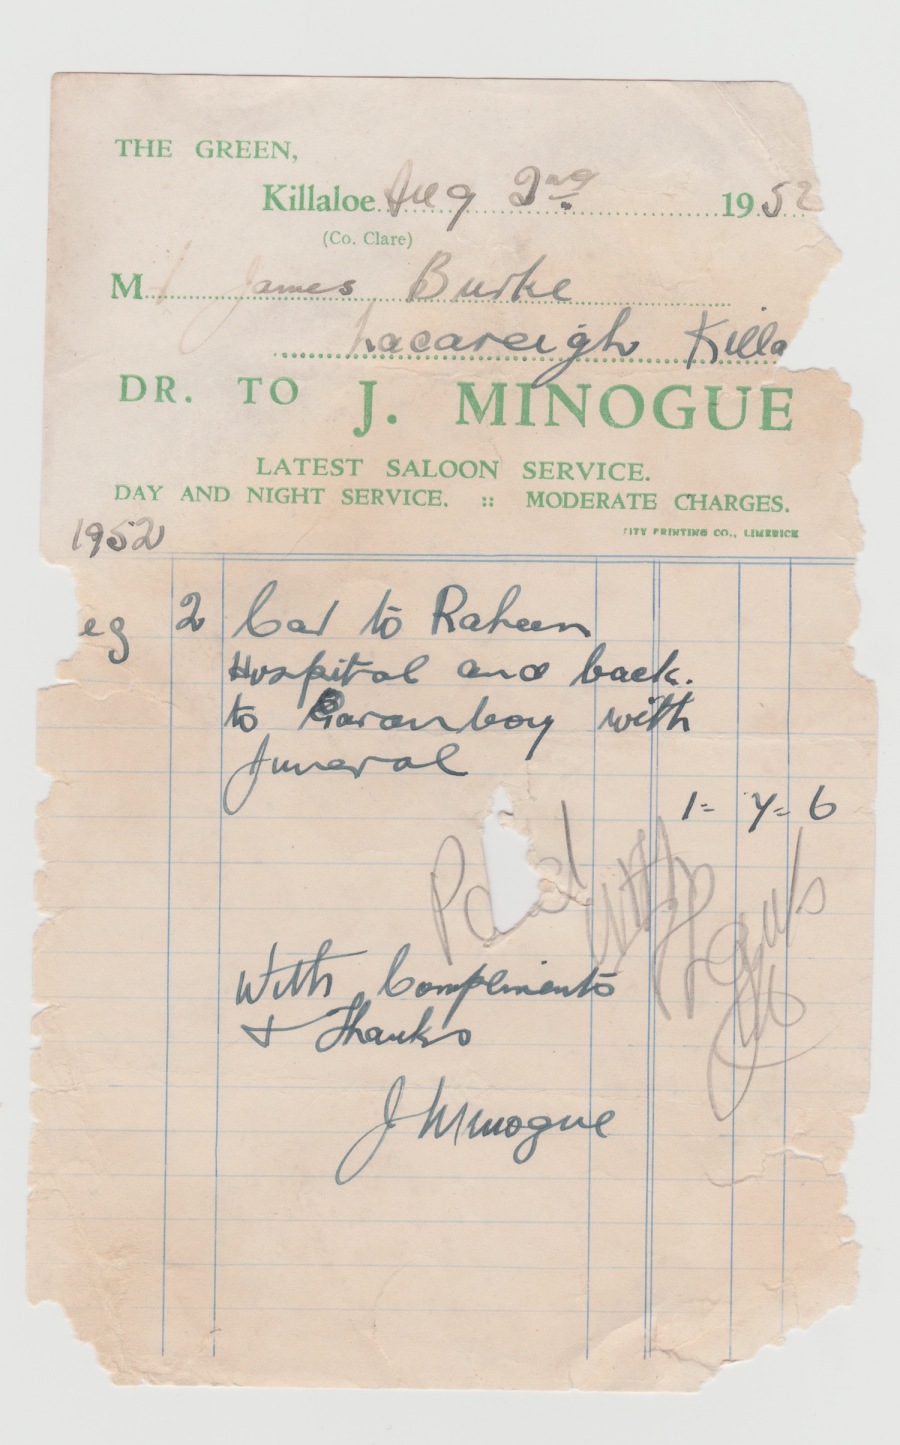 THE GREEN,
Killaloe Aug 2nd 1952
(Co. Clare)
Mr James Burke
Lacareigh Killa
DR. TO J. MINOGUE
LATEST SALOON SERVICE.
DAY AND NIGHT SERVICE. :: MODERATE CHARGES.
CITY PRINTING CO., LIMERICK
1952
eg 2 Car to Raheen
Hospital and back.
to Garanboy with
funeral
1= 7= 6
Paid with
With Compliments
+ Thanks
J Minogue